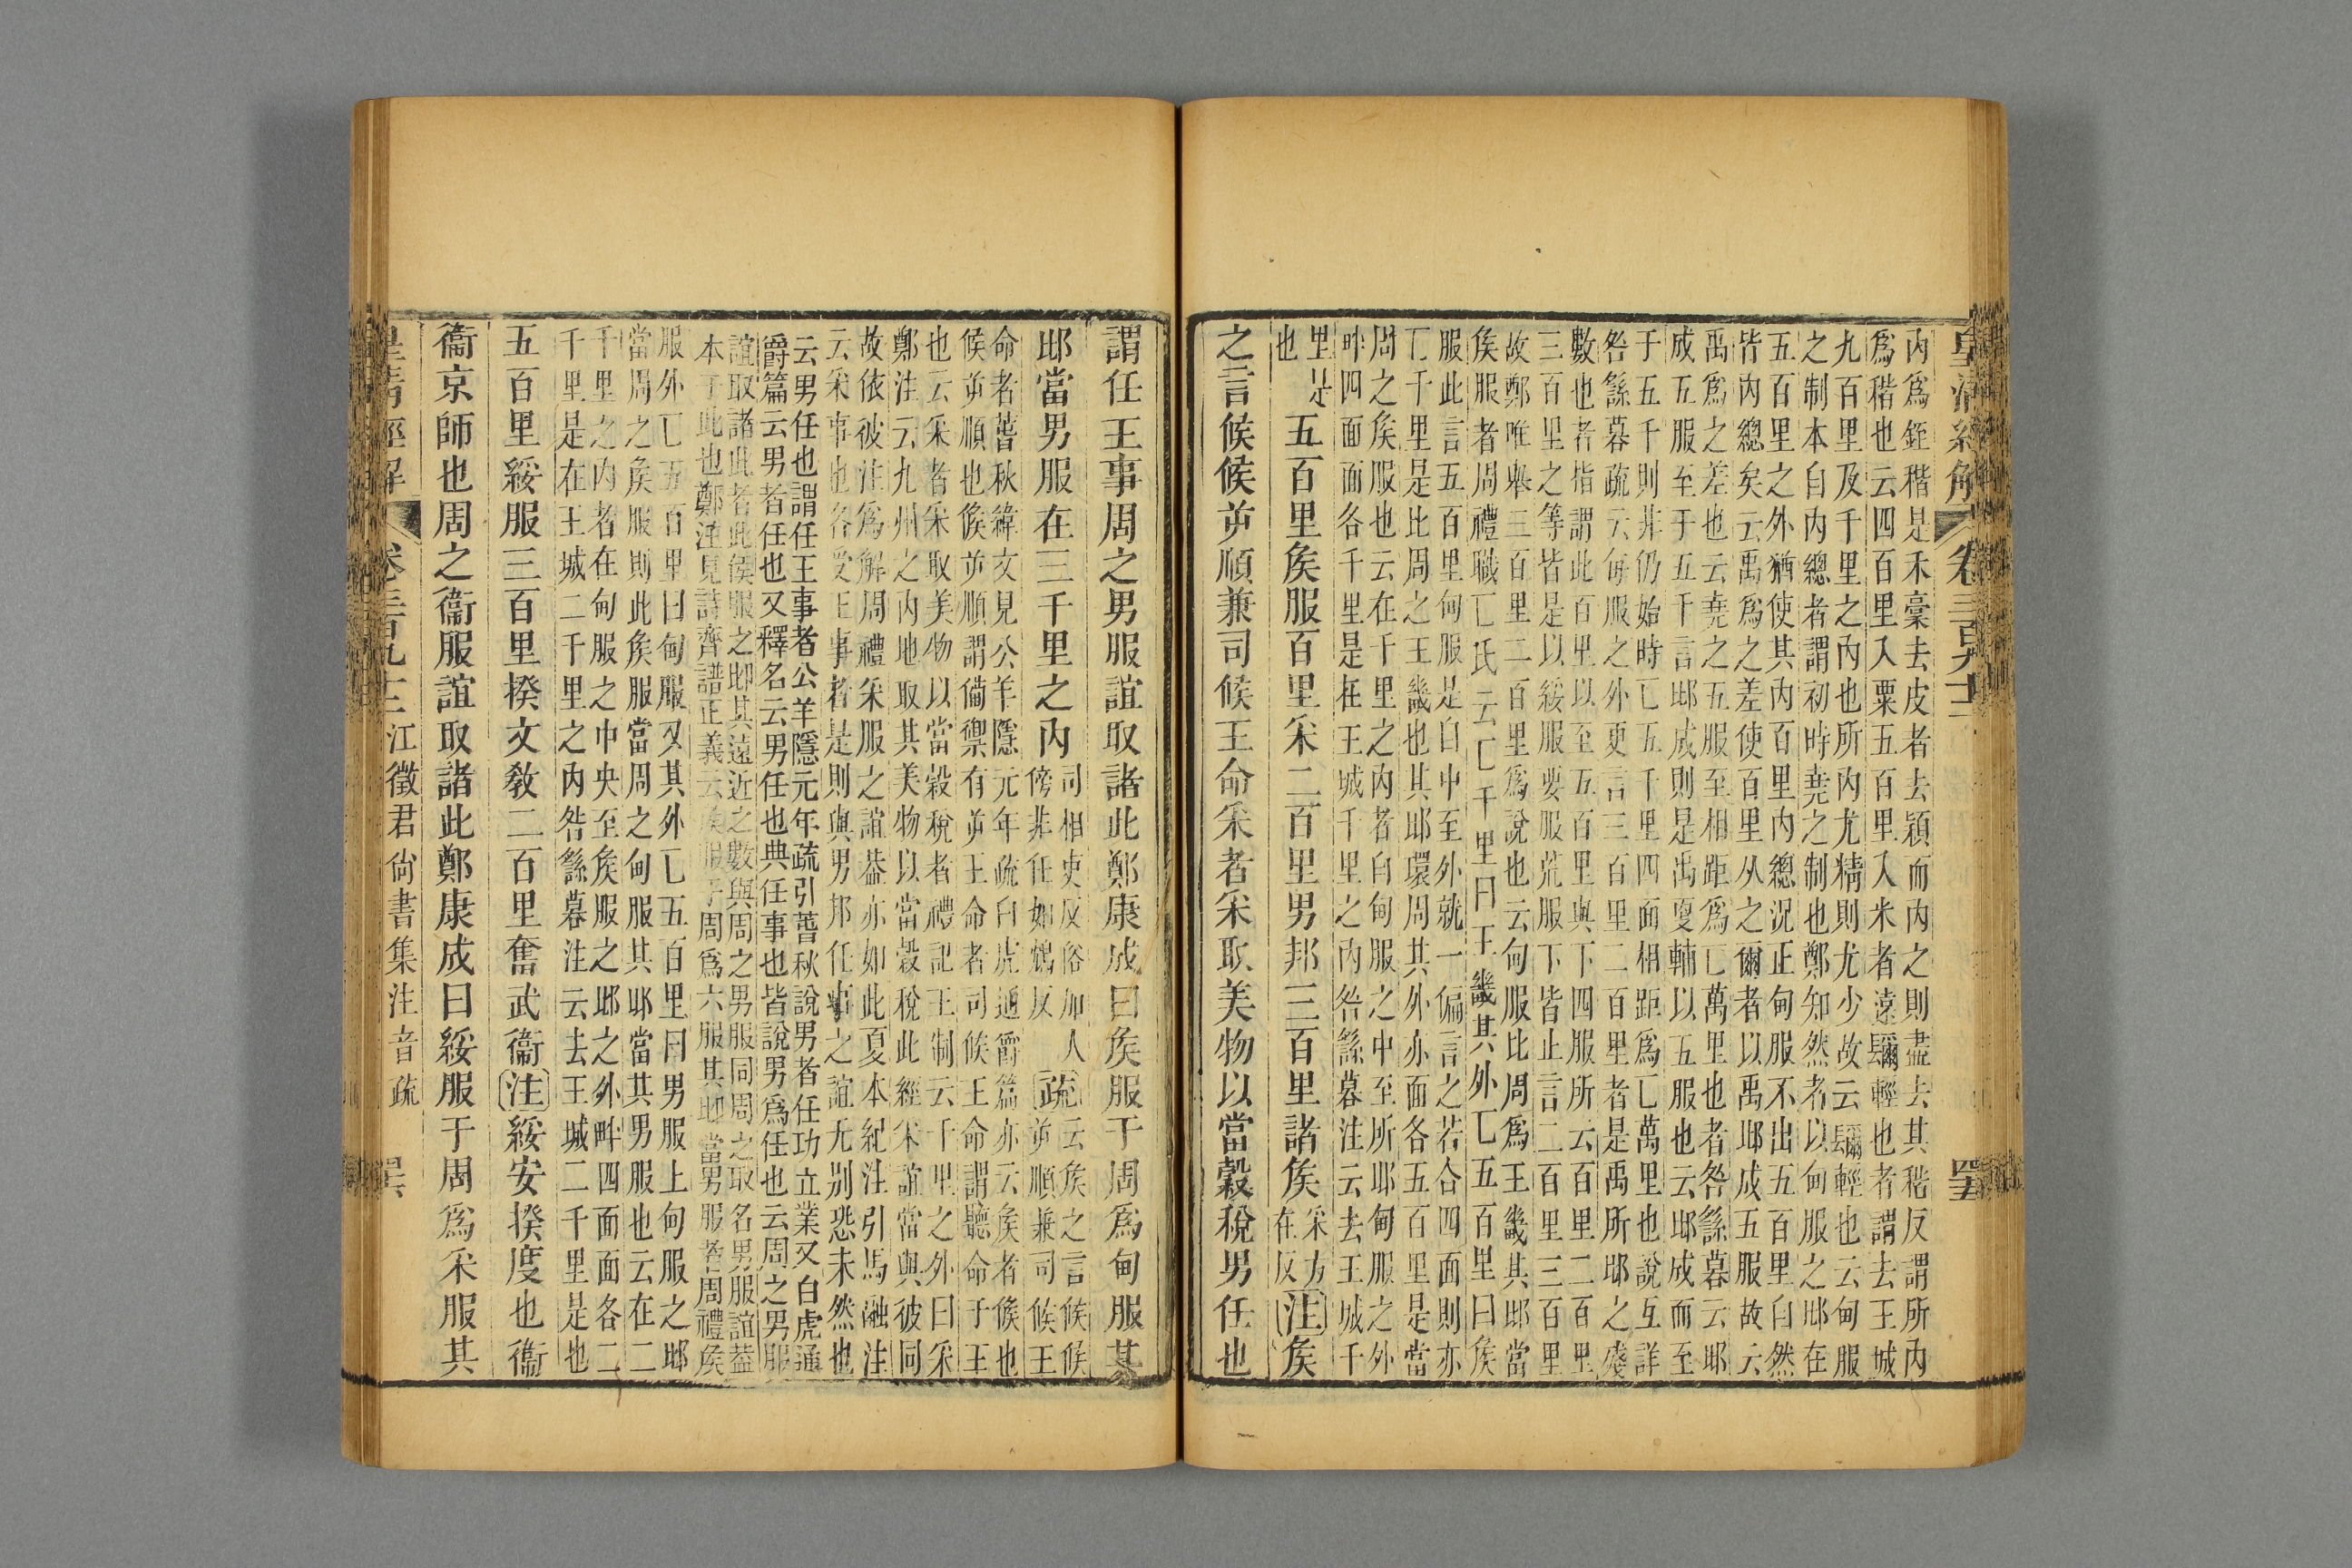 皇清經解
卷三百九十二
內為銍稭是禾稾去皮者去穎而內之則盡去其稭反謂所內
為稭也云四百里入粟五百里入米者遠䢲輕也者謂去王城
九百里及千里之內也所內尤精則尤少故云䢲輕也云甸服
之制本自內總者謂初時堯之制也鄭知然者以甸服之㘝在
五百里之外猶使其內百里內總況正甸服不出五百里自然
皆內總矣云禹為之差使百里从之爾者以禹㘝成五服故云
禹為之差也云堯之五服至相距為匚萬里也者咎繇暮云㘝
成五服至于五千言㘝成則是禹㚆輔以五服也云㘝成而至
于五千則非仍始時匚五千里四面相距為匚萬里也說互詳
咎繇暮疏云每服之外更言三百里二百里者是禹所㘝之殘
數也者指謂此百里以至五百里與下四服所云百里二百里
三百里之等皆是以綏服要服荒服下皆止言二百里三百里
故鄭唯舉三百里二百里為說也云甸服比周為王畿其㘝當
矦服者周禮職匚氏云匚千里曰王畿其外匚五百里曰矦
服此言五百里甸服是自中至外就一偏言之若合四面則亦
匚千里是比周之王畿也其㘝環周其外亦面各五百里是當
周之矦服也云在千里之內者自甸服之中至所㘝甸服之外
畔四面面各千里是在王城千里之內咎繇暮注云去王城千
里是
也
五百里矦服百里采二百里男邦三百里諸矦采方在反注矦
之言候候㒸順兼司候王命采者采取美物以當穀稅男任也
謂任王事周之男服誼取諸此鄭康成曰矦服于周為甸服其
㘝當男服在三千里之內司相吏反俗加人傍非任如鴆反疏云矦之言候候㒸順兼司候王
命者萅秋緯文見公羊隱元年疏白虎通爵篇亦云矦者候也
候㒸順也候㒸順謂僃禦有㒸王命者司候王命謂聽命于王
也云采者采取美物以當穀稅者禮記王制云千里之外曰采
鄭注云九州之內地取其美物以當穀稅此經采誼當與彼同
故依彼注為解周禮采服之誼葢亦如此夏本紀注引馬融注
云采事也各受王事者是則與男邦任事之誼无別恐未然也
云男任也謂任王事者公羊隱元年疏引萅秋說男者任功立業又白虎通
爵篇云男者任也又釋名云男任也典任事也皆說男為任也云周之男服
誼取諸此者此矦服之㘝其遠近之數與周之男服同周之取名男服誼葢
本于此也鄭注見詩齊譜正義云矦服于周為六服其㘝當男服者周禮矦
服外匚五百里曰甸服又其外匚五百里曰男服上甸服之㘝
當周之矦服則此矦服當周之甸服其㘝當其男服也云在二
千里之內者在甸服之中央至矦服之㘝之外畔四面面各二
千里是在王城二千里之內咎繇暮注云去王城二千里是也
五百里綏服三百里揆文教二百里奮武衞注綏安揆度也衞
衞京師也周之衞服誼取諸此鄭康成曰綏服于周為采服其
皇清經解
卷三百九十二
江徵君尙書集注音疏